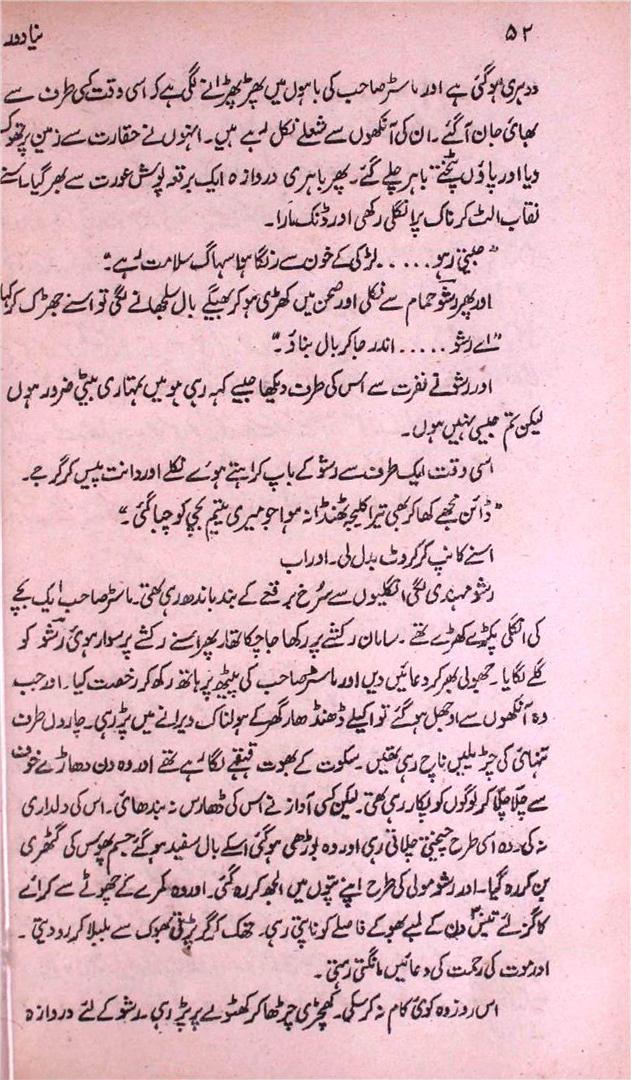 ۵۲ نیا دور
دوہری ہو گئی ہے اور ماسٹر صاحب کی باہوں میں پھڑپھڑانے لگی ہے کہ اسی وقت کسی طرف سے
بھائی جان آ گئے۔ ان کی آنکھوں سے شعلے نکل رہے ہیں۔ انہوں نے حقارت سے زمین پر تھوک
دیا اور پاؤں پٹختے باہر چلے گئے۔ پھر باہری دروازہ ایک برقعہ پوش عورت سے بھر گیا۔ اسنے
نقاب الٹ کر ناک پر انگلی رکھی اور ڈنک مارا۔
"جیتی رہو ..... لڑکی کے خون سے رنگا ہوا سہاگ سلامت رہے۔"
اور پھر رشّو حمام سے نکلی اور صحن میں کھڑی ہو کر بھیگے بال سلجھانے لگی تو اسنے جھڑک کر کہا
"اے رشو ..... اندر جا کر بال بناؤ۔"
اور رشو نے نفرت سے اس کی طرف دیکھا جیسے کہہ رہی ہو میں تمہاری بیٹی ضرور ہوں
لیکن تم جیسی نہیں ہوں۔
اسی وقت ایک طرف سے رشو کے باپ کراہتے ہوئے نکلے اور دانت پیس کر گرجے۔
"ڈائن مجھے کھا کر بھی تیرا کلیجہ ٹھنڈا نہ ہوا جو میری یتیم بچی کو چبا گئی۔"
اسنے کانپ کر کروٹ بدل لی۔ اور اب
رشو مہندی لگی انگلیوں سے سُرخ برقعے کے بند باندھ رہی تھی۔ ماسٹر صاحب ایک بچے
کی انگلی پکڑے کھڑے تھے۔ سامان رکشے پر رکھا جا چکا تھا۔ پھر اسنے رکشے پر سوار ہوئی رشّو کو
گلے لگایا۔ جھولی بھر کر دعائیں دیں اور ماسٹر صاحب کی پیٹھ پر ہاتھ رکھ کر رخصت کیا۔ اور جب
وہ آنکھوں سے اوجھل ہو گئے تو اکیلے ڈھنڈھار گھر کے ہولناک ویرانے میں پڑ رہی۔ چاروں طرف
تنہائی کی چڑیلیں ناچ رہی تھیں۔ سکوت کے بھوت قہقہے لگا رہے تھے اور وہ دن دھاڑے خوف
سے چلّا چلّا کر لوگوں کو پکار رہی تھی۔ لیکن کسی آواز نے اس کی ڈھارس نہ بندھائی۔ اس کی دلداری
نہ کی۔ وہ اسی طرح چیختی چلاتی رہی اور وہ بوڑھی ہو گئی اسکے بال سفید ہو گئے جسم پھوس کی گٹھری
بن کر رہ گیا۔ اور رشو مولی کی طرح اپنے پتوں میں الجھ کر رہ گئی۔ اور وہ کمرے کے چھوٹے سے کرائے
کا گز لئے تیس دن کے لمبے بھوکے فاصلے کو ناپتی رہی۔ تھک کر گر پڑتی بھوک سے بلبلا کر رو دیتی۔
اور موت کی رحمت کی دعائیں مانگتی رہتی۔
اس روز وہ کوئی کام نہ کر سکی۔ کھچڑی چڑھا کر کھٹولے پر پڑ رہی۔ رشو کے لئے دروازہ